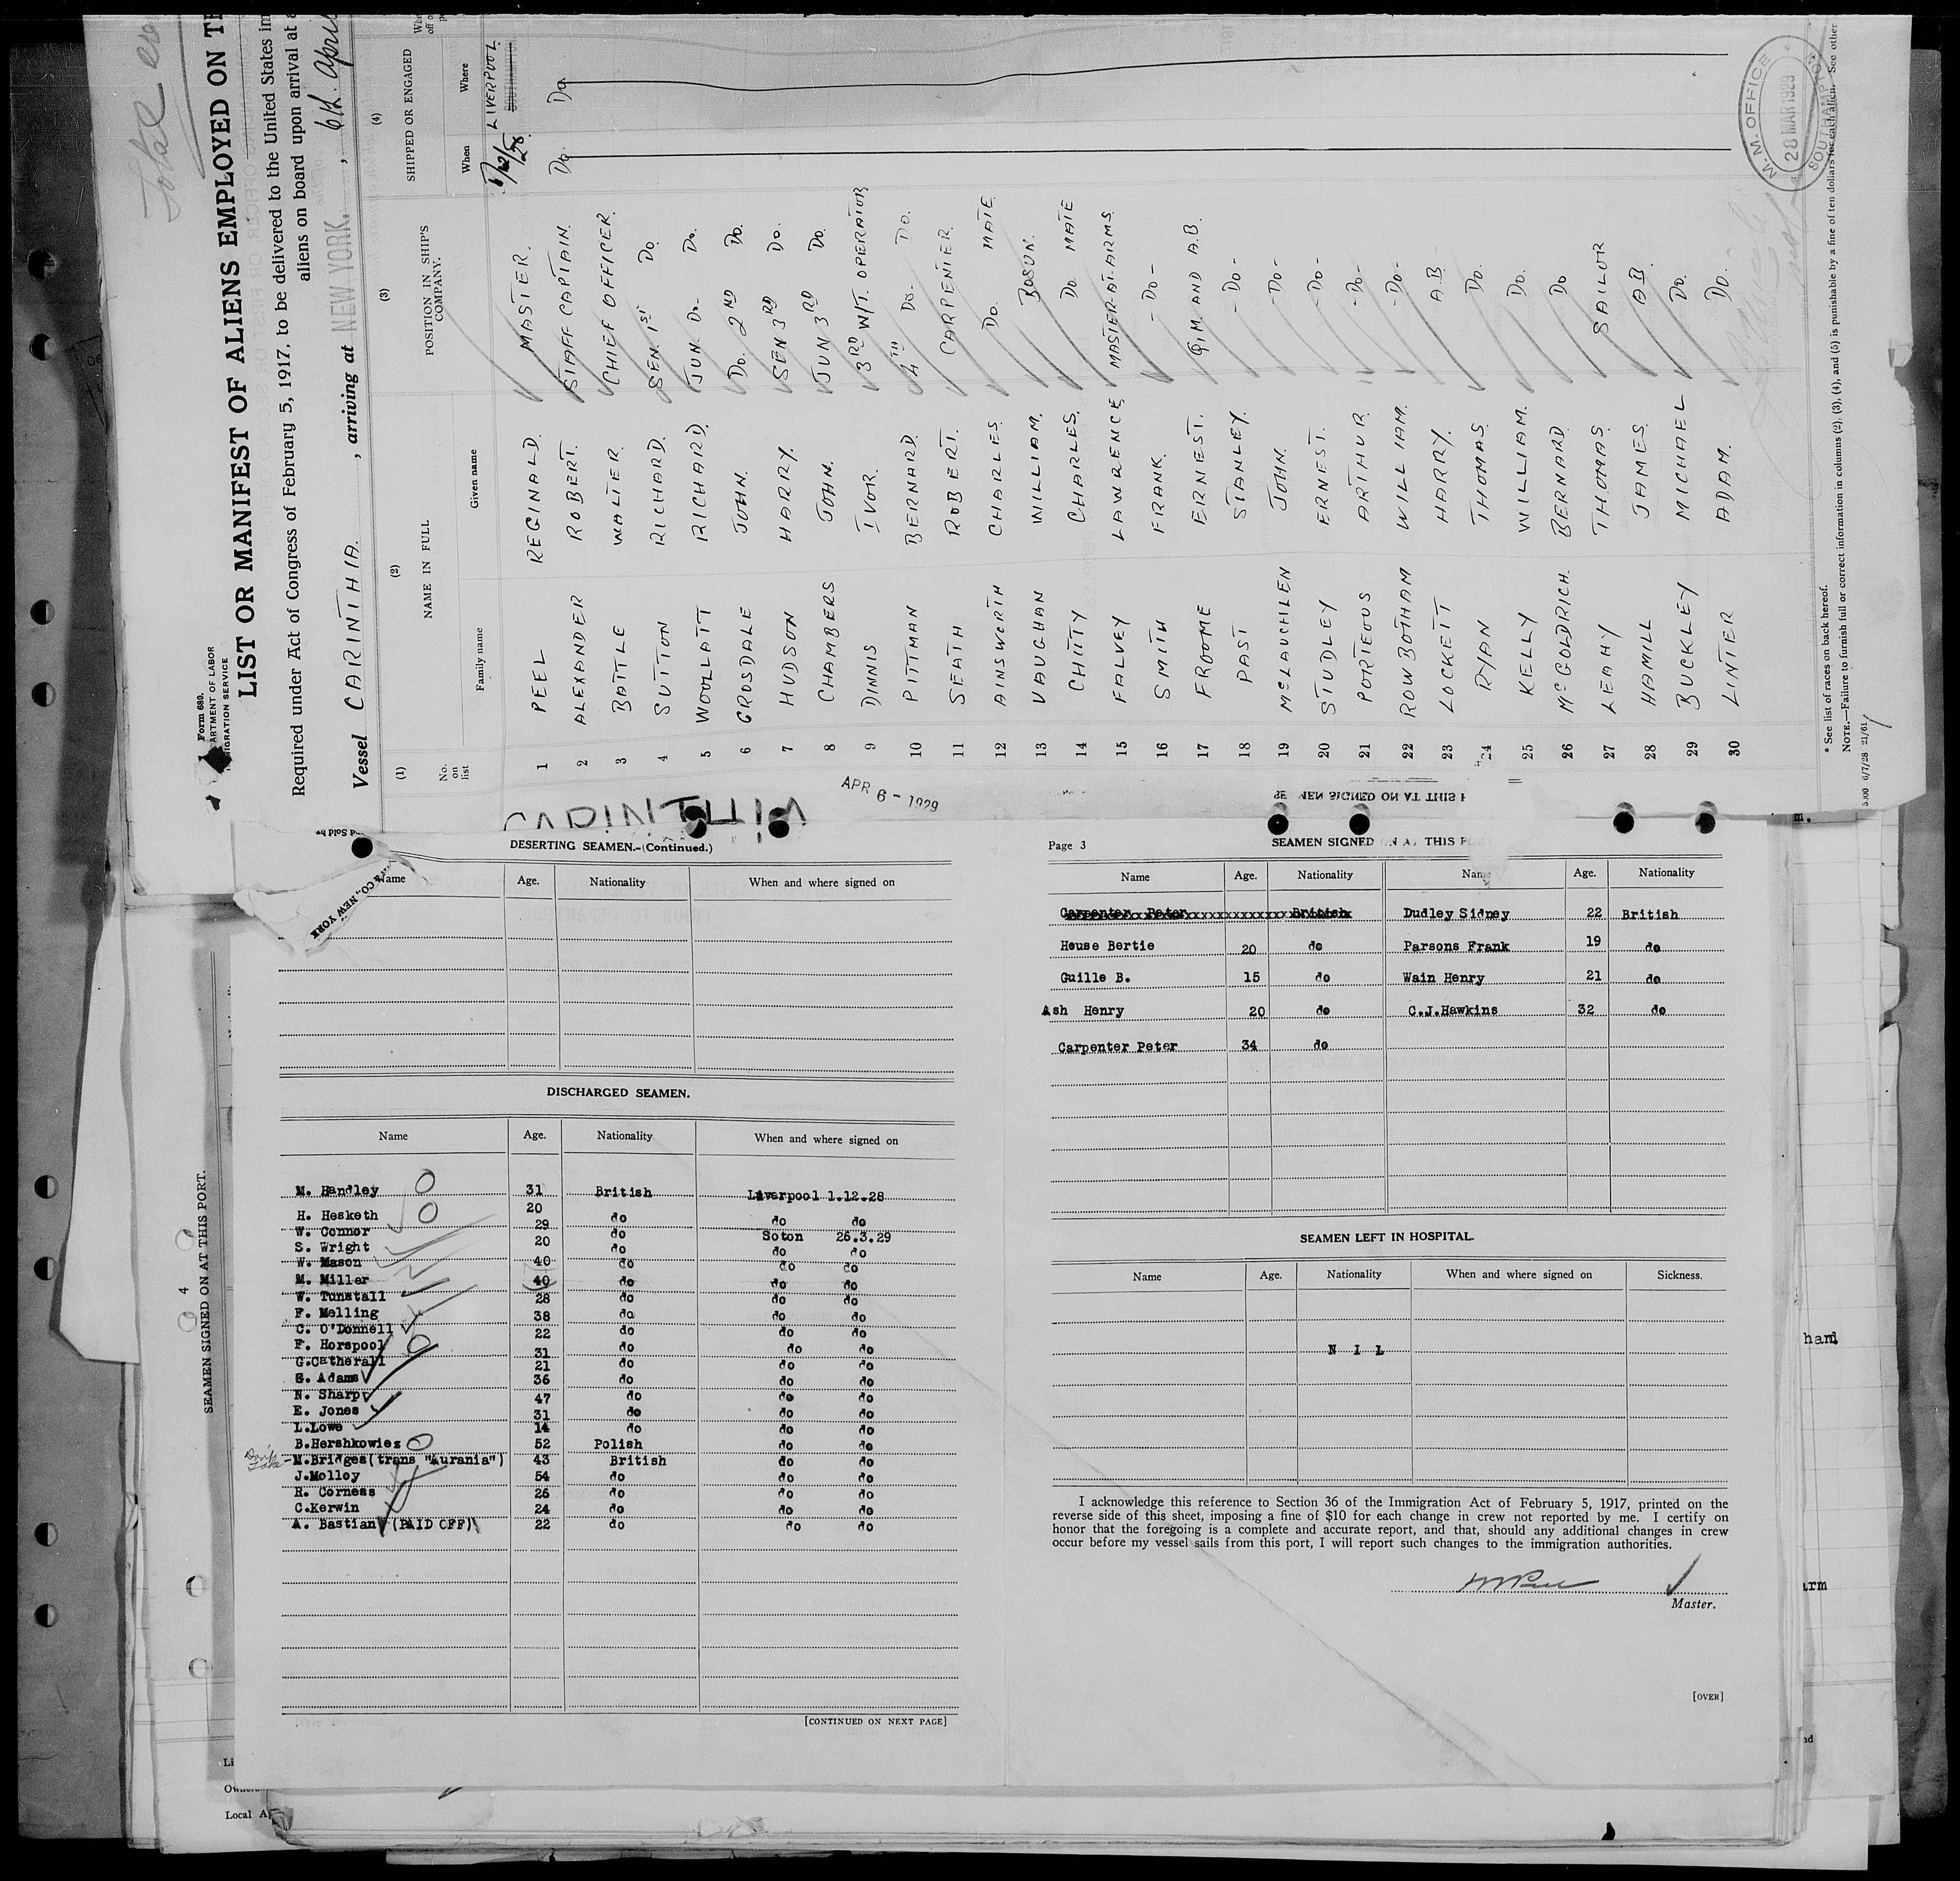 Form 689.
LIST OR MANIFEST OF ALIENS EMPLOYED ON
Required under Act of Congress of February 5, 1917, to be delivered to the United States
aliens on board upon arrival at
Vessel CARINTHIA. , arriving at NEW YORK. , 6th. April
(1) (2) (3) (4)
No. on list NAME IN FULL POSITION IN SHIP'S COMPANY. SHIPPED OR ENGAGED
Family name Given name When Where
1 PEEL REGINALD. MASTER. LIVERPOOL
2 ALEXANDER ROBERT. STAFF CAPTAIN. Do. Do.
3 BATTLE WALTER. CHIEF OFFICER.
4 SUTTON RICHARD. SEN. 1ST Do.
5 WOOLLATT RICHARD. JUN. Do. Do.
6 GROSDALE JOHN. Do. 2ND Do.
7 HUDSON HARRY. SEN 3RD Do.
8 CHAMBERS JOHN. JUN 3RD Do.
9 DINNIS IVOR. 3RD W/T. OPERATOR
10 PITTMAN BERNARD. 4TH Do. Do.
11 SEATH ROBERT. CARPENTER.
12 AINSWORTH CHARLES. Do. MATE.
13 VAUGHAN WILLIAM. BOSUN.
14 CHITTY CHARLES. Do. MATE
15 FALVEY LAWRENCE. MASTER-AT-ARMS.
16 SMITH FRANK. - Do -
17 FROOME ERNEST. Q.M. AND A.B.
18 PAST STANLEY. - Do -
19 McLAUCHLEN JOHN. - Do -
20 STUDLEY ERNEST. - Do -
21 PORTEOUS ARTHUR. - Do -
22 ROWBOTHAM WILLIAM. - Do -
23 LOCKETT HARRY. A.B.
24 RYAN THOMAS. Do.
25 KELLY WILLIAM. Do.
26 McGOLDRICH. BERNARD. Do
27 LEAHY THOMAS. SAILOR
28 HAMILL JAMES. A.B.
29 BUCKLEY MICHAEL Do.
30 LINTER ADAM. Do.
M.M. OFFICE
28 MAR 1929
SOUTHAMPTON
* See list of races on back hereof.
NOTE.—Failure to furnish full or correct information in columns (2), (3), (4), and (5) is punishable by a fine of ten dollars for each alien. See other
5,000 6/7/28 21/61
APR 6 - 1929
DESERTING SEAMEN.-(Continued.)
Name Age. Nationality When and where signed on
& CO., NEW YORK
DISCHARGED SEAMEN.
Name Age. Nationality When and where signed on
M. Handley 31 British Liverpool 1.12.28
H. Hesketh 20 do do do
W. Connor 29 do Soton 26.3.29
S. Wright 20 do do do
W. Mason 40 do do do
M. Miller 40 do do do
W. Tunstall 28 do do do
F. Melling 38 do do do
C. O'Donnell 22 do do do
F. Horspool 31 do do do
G.Catherall 21 do do do
S. Adams 36 do do do
N. Sharp 47 do do do
E. Jones 31 do do do
L.Lowe 14 do do do
B.Hershkowiez 52 Polish do do
M.Bridges(trans "Aurania") 43 British do do
J.Molloy 54 do do do
R. Corness 26 do do do
C.Kerwin 24 do do do
A. Bastian (PAID OFF) 22 do do do
[CONTINUED ON NEXT PAGE]
Page 3
SEAMEN SIGNED ON AT THIS
Name Age. Nationality Name Age. Nationality
Carpenter Peter British Dudley Sidney 22 British
House Bertie 20 do Parsons Frank 19 do
Guille B. 15 do Wain Henry 21 do
Ash Henry 20 do C.J.Hawkins 32 do
Carpenter Peter 34 do
SEAMEN LEFT IN HOSPITAL.
Name Age. Nationality When and where signed on Sickness.
N I L
I acknowledge this reference to Section 36 of the Immigration Act of February 5, 1917, printed on the
reverse side of this sheet, imposing a fine of $10 for each change in crew not reported by me. I certify on
honor that the foregoing is a complete and accurate report, and that, should any additional changes in crew
occur before my vessel sails from this port, I will report such changes to the immigration authorities.
Master.
[OVER]
4
SEAMEN SIGNED ON AT THIS PORT.